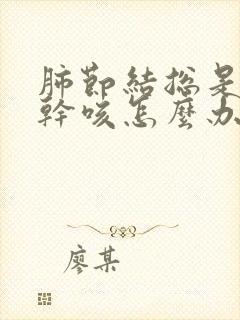 肺節結總是
幹咳怎麼办
廖某